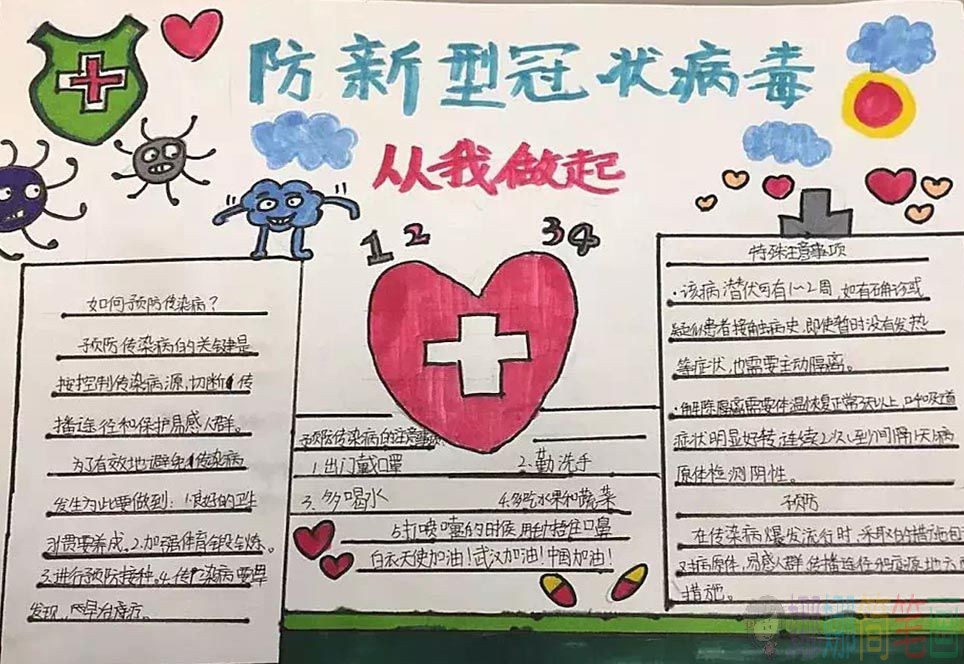 防新型冠状病毒
从我做起
1 2 3 4
如何预防传染病？
预防传染病的关键是
控制传染病源，切断传
播途径和保护易感人群。
为了有效地避免传染病
发生为此要做到：1.良好的卫生
习惯要养成。2.加强体育锻炼。
3.进行预防接种。4.传染病要早
发现，早治疗。
预防传染病的注意事项
1.出门戴口罩
2.勤洗手
3.多喝水
4.多吃水果和蔬菜
5.打喷嚏的时候用肘捂住口鼻
白衣天使加油！武汉加油！中国加油！
特殊注意事项
·该病潜伏可有1~2周，如有确诊或
疑似患者接触病史，即使暂时没有发热
等症状，也需要主动隔离。
·解除隔离需要体温恢复正常3天以上，呼吸道
症状明显好转，连续2次(至少间隔1天)病
原体检测阴性。
预防
在传染病爆发流行时，采取的措施包
对病原体，易感人群，传播途径和疫源地
措施。
娜娜简笔画